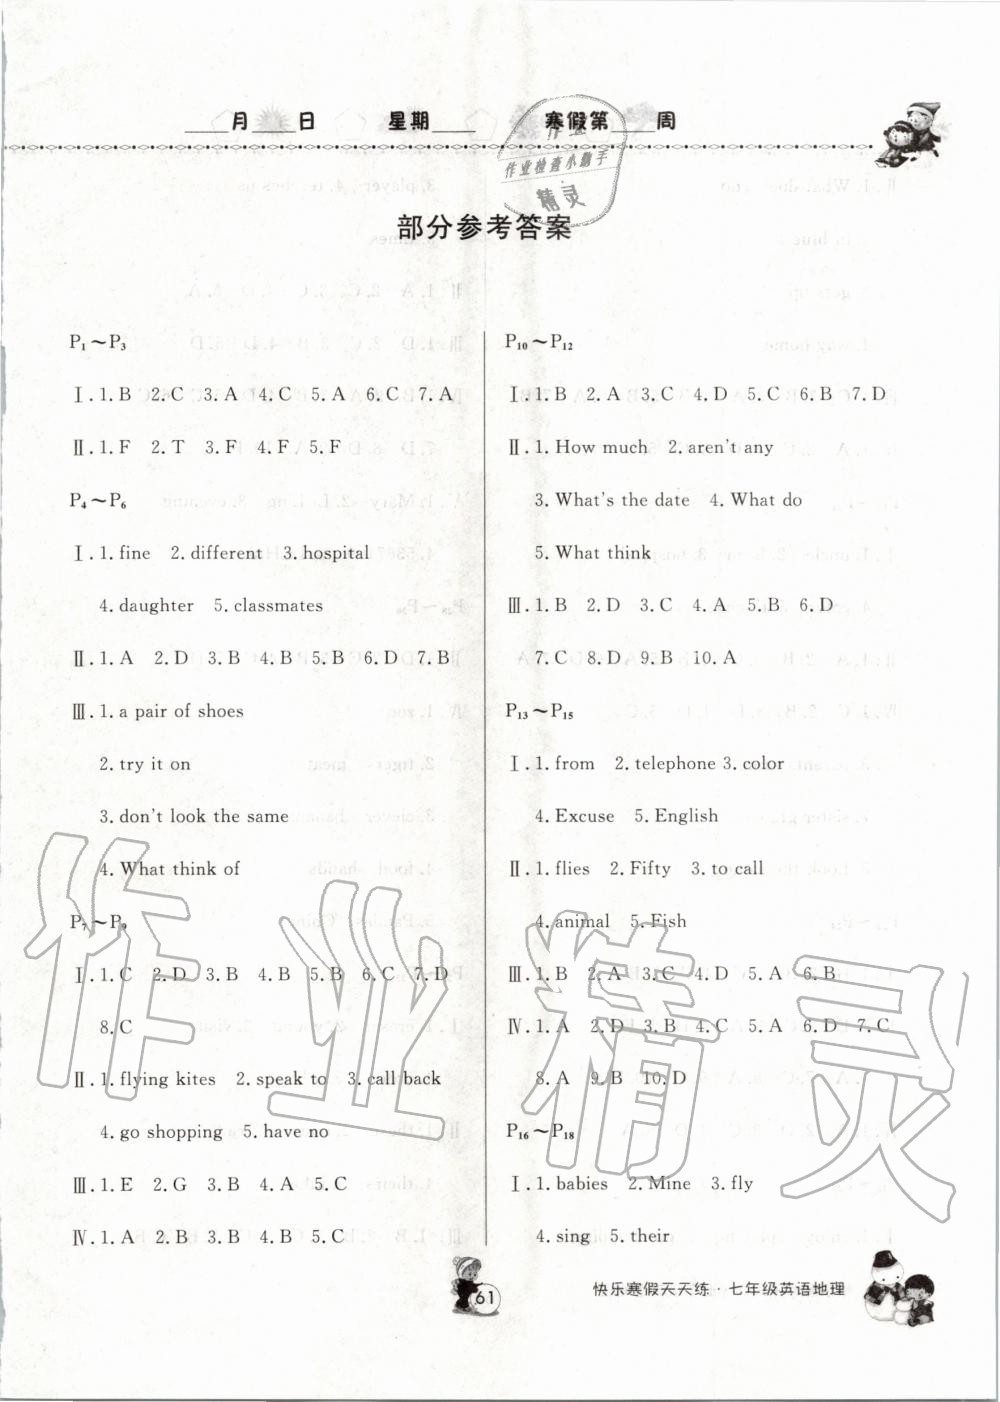 月 日 星期 寒假第 周
作业
作业检查小助手
精灵
部分参考答案
P₁～P₃
Ⅰ.1.B 2.C 3.A 4.C 5.A 6.C 7.A
Ⅱ.1.F 2.T 3.F 4.F 5.F
P₄～P₆
Ⅰ.1.fine 2.different 3.hospital
4.daughter 5.classmates
Ⅱ.1.A 2.D 3.B 4.B 5.B 6.D 7.B
Ⅲ.1.a pair of shoes
2.try it on
3.don't look the same
4.What think of
P₇～P₉
Ⅰ.1.C 2.D 3.B 4.B 5.B 6.C 7.D
8.C
Ⅱ.1.flying kites 2.speak to 3.call back
4.go shopping 5.have no
Ⅲ.1.E 2.G 3.B 4.A 5.C
Ⅳ.1.A 2.B 3.B 4.B 5.C
P₁₀～P₁₂
Ⅰ.1.B 2.A 3.C 4.D 5.C 6.B 7.D
Ⅱ.1.How much 2.aren't any
3.What's the date 4.What do
5.What think
Ⅲ.1.B 2.D 3.C 4.A 5.B 6.D
7.C 8.D 9.B 10.A
P₁₃～P₁₅
Ⅰ.1.from 2.telephone 3.color
4.Excuse 5.English
Ⅱ.1.flies 2.Fifty 3.to call
4.animal 5.Fish
Ⅲ.1.B 2.A 3.C 4.D 5.A 6.B
Ⅳ.1.A 2.D 3.B 4.C 5.A 6.D 7.C
8.A 9.B 10.D
P₁₆～P₁₈
Ⅰ.1.babies 2.Mine 3.fly
4.sing 5.their
作业精灵
61
快乐寒假天天练·七年级英语地理